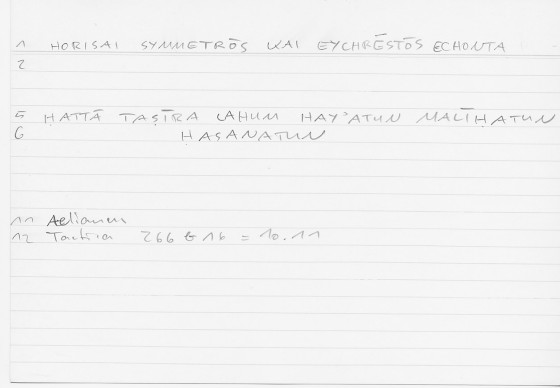 1 HORISAI SYMMETRŌS KAI EYCHRĒSTŌS ECHONTA
2
5 ḤATTĀ TAṢĪRA LAHUM HAY'ATUN MALĪḤATUN
6 ḤASANATUN
11 Aelianus
12 Tactica 266 G 16 = 10.11